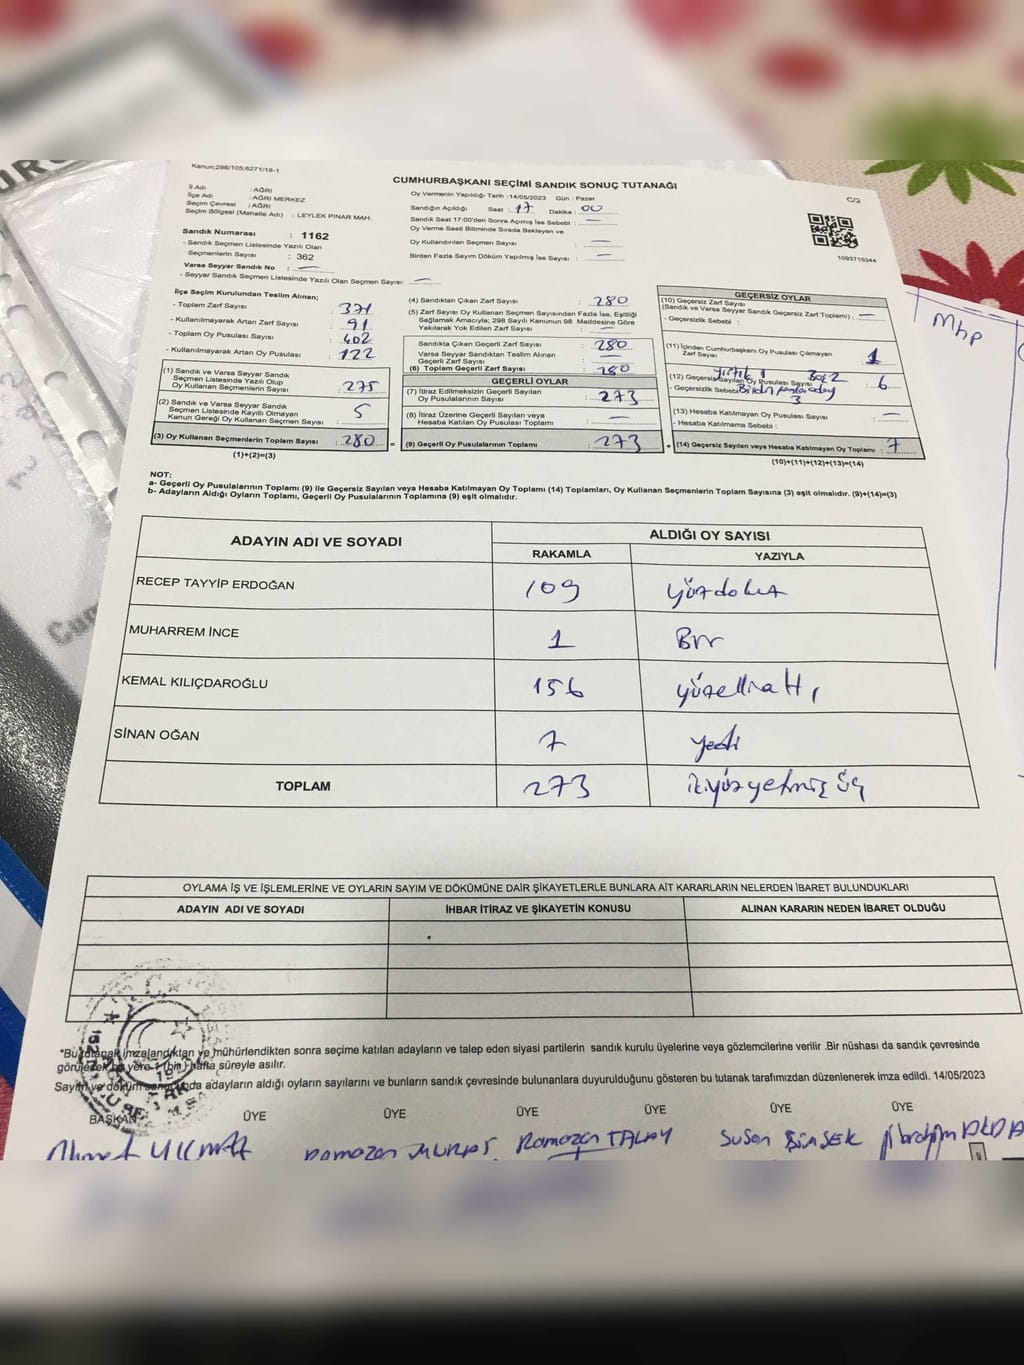 Kanun;298/105;6271/18-1
CUMHURBAŞKANI SEÇİMİ SANDIK SONUÇ TUTANAĞI
C/2
İl Adı : AĞRI
İlçe Adı : AĞRI MERKEZ
Seçim Çevresi : AĞRI
Seçim Bölgesi (Mahalle Adı) : LEYLEK PINAR MAH.
Sandık Numarası : 1162
- Sandık Seçmen Listesinde Yazılı Olan
Seçmenlerin Sayısı : 362
Varsa Seyyar Sandık No : —
- Seyyar Sandık Seçmen Listesinde Yazılı Olan Seçmen Sayısı: —
Oy Vermenin Yapıldığı Tarih :14/05/2023 Gün : Pazar
Sandığın Açıldığı Saat : 17 Dakika : 00
Sandık Saat 17:00'den Sonra Açımış İse Sebebi : —
Oy Verme Saati Bitiminde Sırada Bekleyen ve
Oy Kullandırılan Seçmen Sayısı : —
Birden Fazla Sayım Döküm Yapılmış İse Sayısı : —
1093715344
İlçe Seçim Kurulundan Teslim Alınan;
- Toplam Zarf Sayısı : 371
- Kullanılmayarak Artan Zarf Sayısı : 91
- Toplam Oy Pusulası Sayısı : 402
- Kullanılmayarak Artan Oy Pusulası : 122
(1) Sandık ve Varsa Seyyar Sandık
Seçmen Listesinde Yazılı Olup
Oy Kullanan Seçmenlerin Sayısı : 275
(2) Sandık ve Varsa Seyyar Sandık
Seçmen Listesinde Kayıtlı Olmayan
Kanun Gereği Oy Kullanan Seçmen Sayısı : 5
(3) Oy Kullanan Seçmenlerin Toplam Sayısı : 280 =
(1)+(2)=(3)
(4) Sandıktan Çıkan Zarf Sayısı : 280
(5) Zarf Sayısı Oy Kullanan Seçmen Sayısından Fazla İse, Eşitliği
Sağlamak Amacıyla; 298 Sayılı Kanunun 98. Maddesine Göre
Yakılarak Yok Edilen Zarf Sayısı : —
Sandıkta Çıkan Geçerli Zarf Sayısı : 280
Varsa Seyyar Sandıktan Teslim Alınan
Geçerli Zarf Sayısı : —
(6) Toplam Geçerli Zarf Sayısı : 280
GEÇERLİ OYLAR
(7) İtiraz Edilmeksizin Geçerli Sayılan
Oy Pusulalarının Sayısı : 273
(8) İtiraz Üzerine Geçerli Sayılan veya
Hesaba Katılan Oy Pusulası Sayısı : —
(9) Geçerli Oy Pusulalarının Toplamı : 273 +
GEÇERSİZ OYLAR
(10) Geçersiz Zarf Sayısı
(Sandık ve Varsa Seyyar Sandık Geçersiz Zarf Toplamı) : —
- Geçersizlik Sebebi :
(11) İçinden Cumhurbaşkanı Oy Pusulası Çıkmayan
Zarf Sayısı : 1
(12) Geçersiz Sayılan Oy Pusulası Sayısı : 6
- Geçersizlik Sebebi:
Yırtık 1 Boş 2
3
(13) Hesaba Katılmayan Oy Pusulası Sayısı : —
- Hesaba Katılmama Sebebi :
(14) Geçersiz Sayılan veya Hesaba Katılmayan Oy Toplamı : 7
(10)+(11)+(12)+(13)=(14)
Mhp
NOT:
a- Geçerli Oy Pusulalarının Toplamı (9) ile Geçersiz Sayılan veya Hesaba Katılmayan Oy Toplamı (14) Toplamları, Oy Kullanan Seçmenlerin Toplam Sayısına (3) eşit olmalıdır. (9)+(14)=(3)
b- Adayların Aldığı Oyların Toplamı, Geçerli Oy Pusulalarının Toplamına (9) eşit olmalıdır.
ADAYIN ADI VE SOYADI ALDIĞI OY SAYISI
RAKAMLA YAZIYLA
RECEP TAYYİP ERDOĞAN 109 yüzdokuz
MUHARREM İNCE 1 Bir
KEMAL KILIÇDAROĞLU 156 yüzellialtı
SİNAN OĞAN 7 yedi
TOPLAM 273 ikiyüzyetmiş üç
OYLAMA İŞ VE İŞLEMLERİNE VE OYLARIN SAYIM VE DÖKÜMÜNE DAİR ŞİKAYETLERLE BUNLARA AİT KARARLARIN NELERDEN İBARET BULUNDUKLARI
ADAYIN ADI VE SOYADI İHBAR İTİRAZ VE ŞİKAYETİN KONUSU ALINAN KARARIN NEDEN İBARET OLDUĞU
*Bu tutanak imzalandıktan ve mühürlendikten sonra seçime katılan adayların ve talep eden siyasi partilerin sandık kurulu üyelerine veya gözlemcilerine verilir .Bir nüshası da sandık çevresinde
görülecek bir yere 1 (bir) hafta süreyle asılır.
Sayım ve döküm sonucunda adayların aldığı oyların sayılarını ve bunların sandık çevresinde bulunanlara duyurulduğunu gösteren bu tutanak tarafımızdan düzenlenerek imza edildi. 14/05/2023
BAŞKAN ÜYE ÜYE ÜYE ÜYE ÜYE ÜYE
Ahmet Ramazan MURAT Ramazan TALAY Susen ŞİMŞEK İbrahim